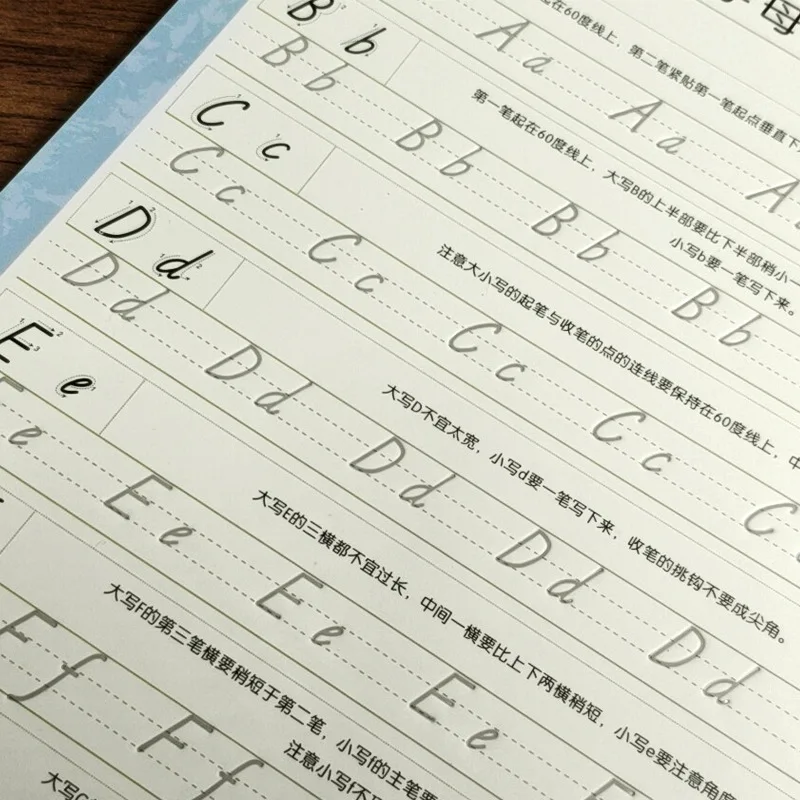 字母
起在60度线上，第二笔紧贴第一笔起点垂直下
A a A a A
B b
第一笔起在60度线上，大写B的上半部要比下半部稍小一
小写b要一笔写下来。
B b B b B b B b
C c
注意大小写的起笔与收笔的点的连线要保持在60度线上，中
C c C c C c C c C
D d
大写D不宜太宽，小写d要一笔写下来，收笔的挑钩不要成尖角。
D d D d D d D d D d
E e
大写E的三横都不宜过长，中间一横要比上下两横稍短，小写e要注意角度
E e E e E e E e E
大写F的第三笔横要稍短于第二笔，小写f的主笔要
注意小写f不
F f F f
大写G